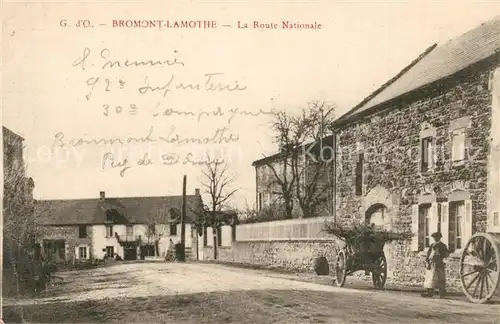 G. d'O. – BROMONT-LAMOTHE – La Route Nationale
92e Infanterie
30e Compagnie
Bromont Lamothe
Puy de Dôme